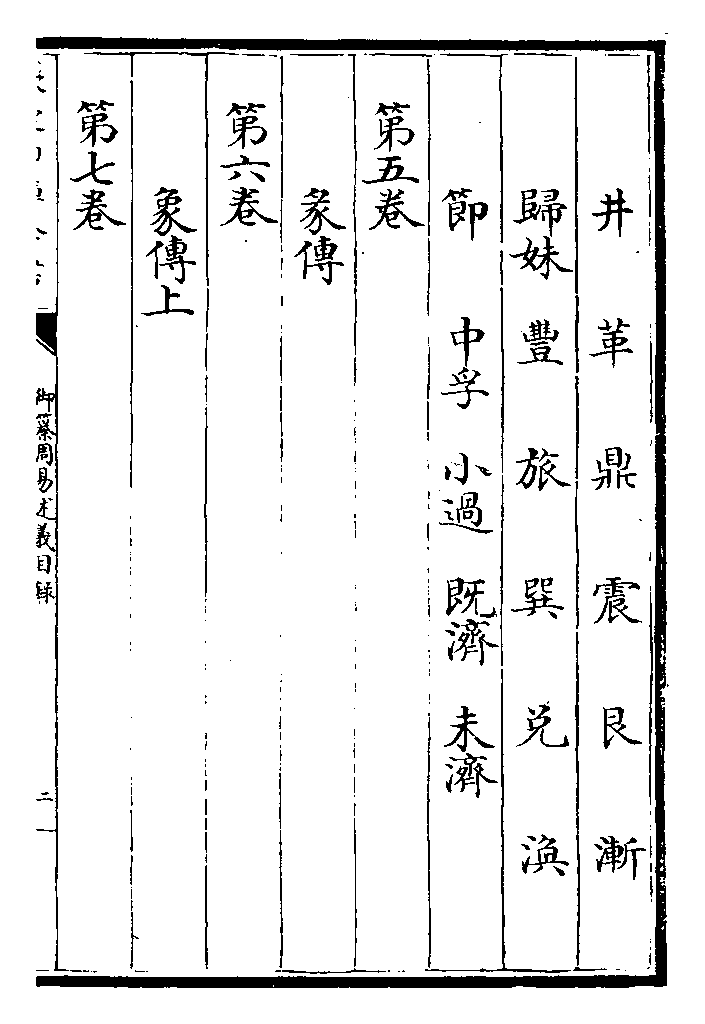 井 革 鼎 震 艮 漸
歸妹 豐 旅 巽 兑 渙
節 中孚 小過 既濟 未濟
第五卷
彖傳
第六卷
象傳上
第七卷
御纂周易述義目録
二